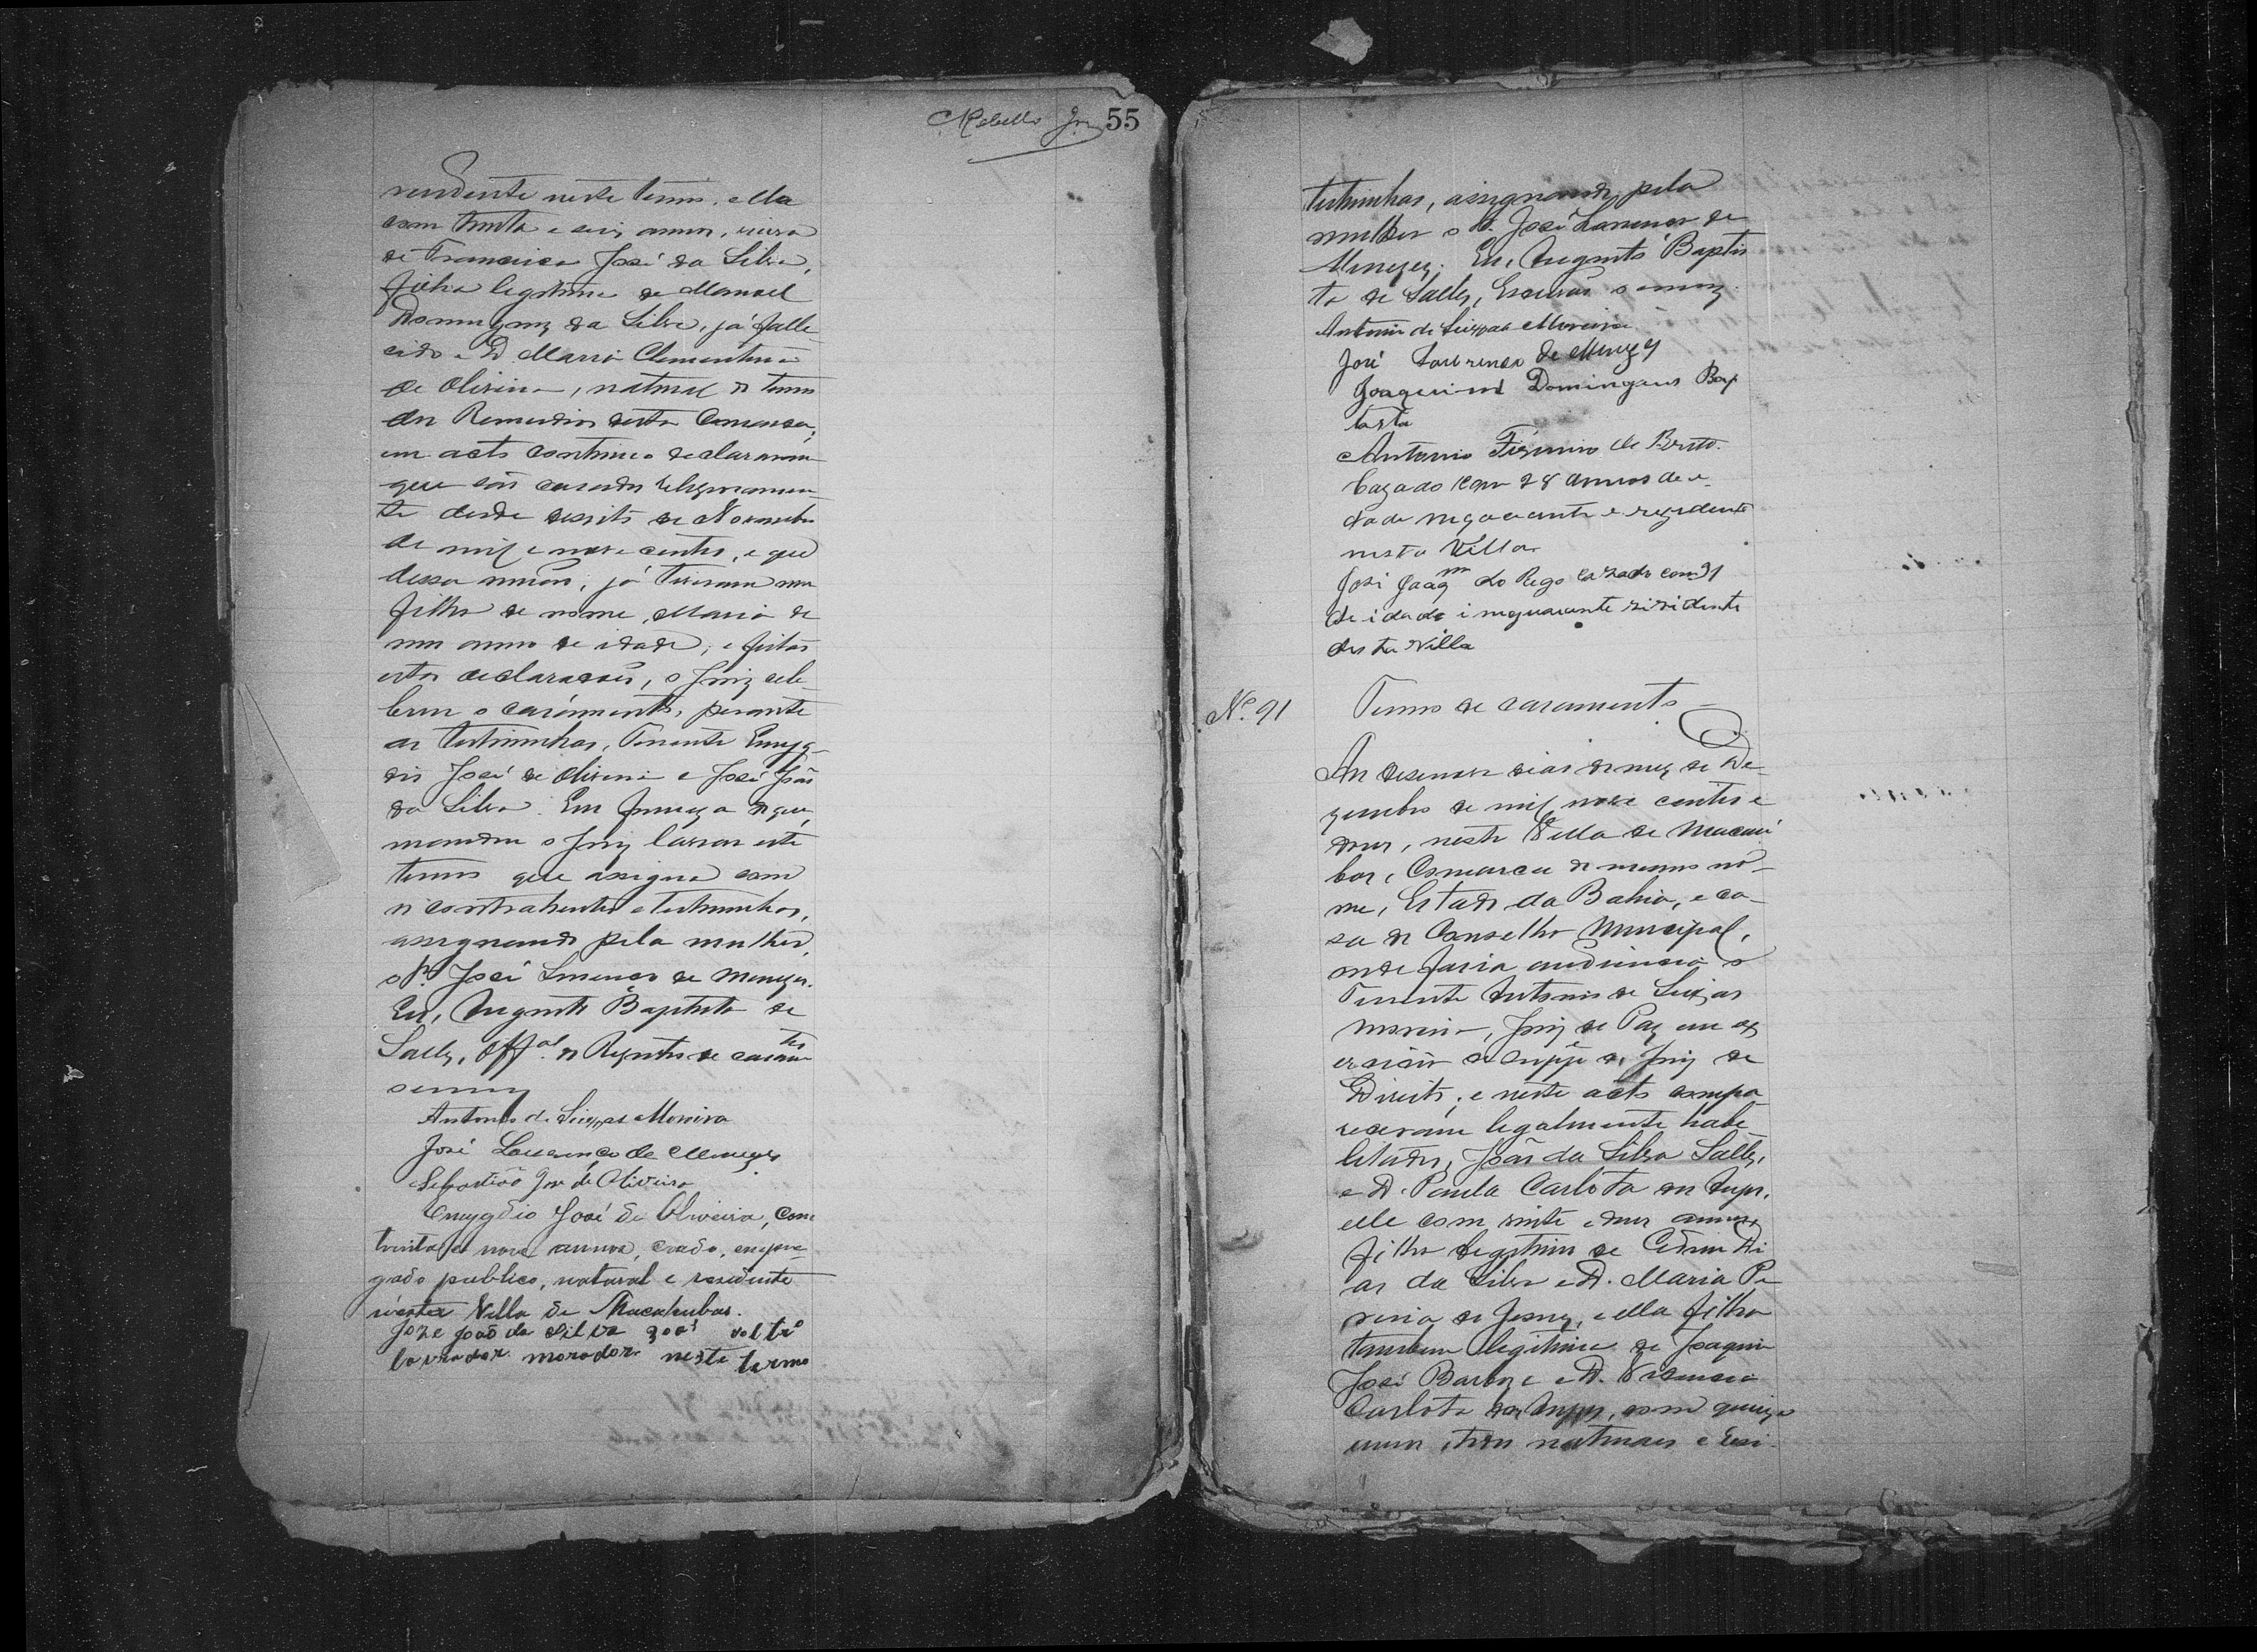 Rebello Jor 55
residente neste termo, ella
com trinta e seis annos, viuva
de Francisco José da Silva,
filha legitima de Manoel
Domingues da Silva, já falle-
cido e D. Maria Clementina
de Oliveira, natural do termo
dos Remedios desta Comarca,
em acto continuo declararam
que são casados religiosamen-
te desde desoito de Novembro
de mil e nove centos, e que
dessa união, já tiveram um
filho de nome, Maria de
um anno de idade; e feitas
estas declarações, o Juiz cele-
brou o casamento, perante
as testimunhas, Tenente Emyg-
dio José de Oliveira e José João
da Silva. Em firmeza do que,
mandou o Juiz lavrar este
termo que assigna com
os contrahentes e testimunhas,
assignando pela mulher,
o Pr. José Lourenço de Menezes.
Eu, Augusto Baptista de
Salles, Offal. do Registro de casamtos
o escrevy
Antonio de Seixas Moreira
José Lourenço de Menezes
Sebastião José de Oliveira
Emygdio José de Oliveira, com
trinta e nove annos, casado, empre-
gado publico, natural e residente
nésta Villa de Macahubas.
Joze João da Silva 30as solto
lavrador morador neste termo
testimunhas, assignando pela
mulher o Pr. José Lourenço de
Menezes. Eu, Augusto Baptis
ta de Salles, Escrivão o escrevy.
Antonio de Seixas Moreira
José Lourenço de Menezes
Joaquim Domingues Bap
tista
Antonio Firmino de Brito.
Cazado com 28 annos de i-
dade negociante e rezidente
nesta Villa
José Joaqm do Rego cazado com 31
de idade i neguciante rizidente
desta Villa
No. 91 Termo de casamento
Aos desenove dias do mez de De-
zembro de mil nove centos e
dous, nesta Villa de Macaú
bas, Comarca do mesmo no-
me, Estado da Bahia, e ca-
sa do Conselho Municipal,
onde fazia audiencia o
Tenente Antonio de Seixas
Moreira, Juiz de Paz em ex
ercicio de suppe do Juiz de
Direito; e neste acto compa-
receram legalmente habe-
litados, João da Silva Salles,
e D. Paula Carlota dos Anjos,
elle com vinte e dous annos,
filho legitimo de Di
as da Silva e D. Maria Pe
reira de Jesus, e ella filha
tambem legitima de Joaquim
José Barboza e D. Vicencia
Carlota dos Anjos, com quinze
annos, todos naturaes e resi-